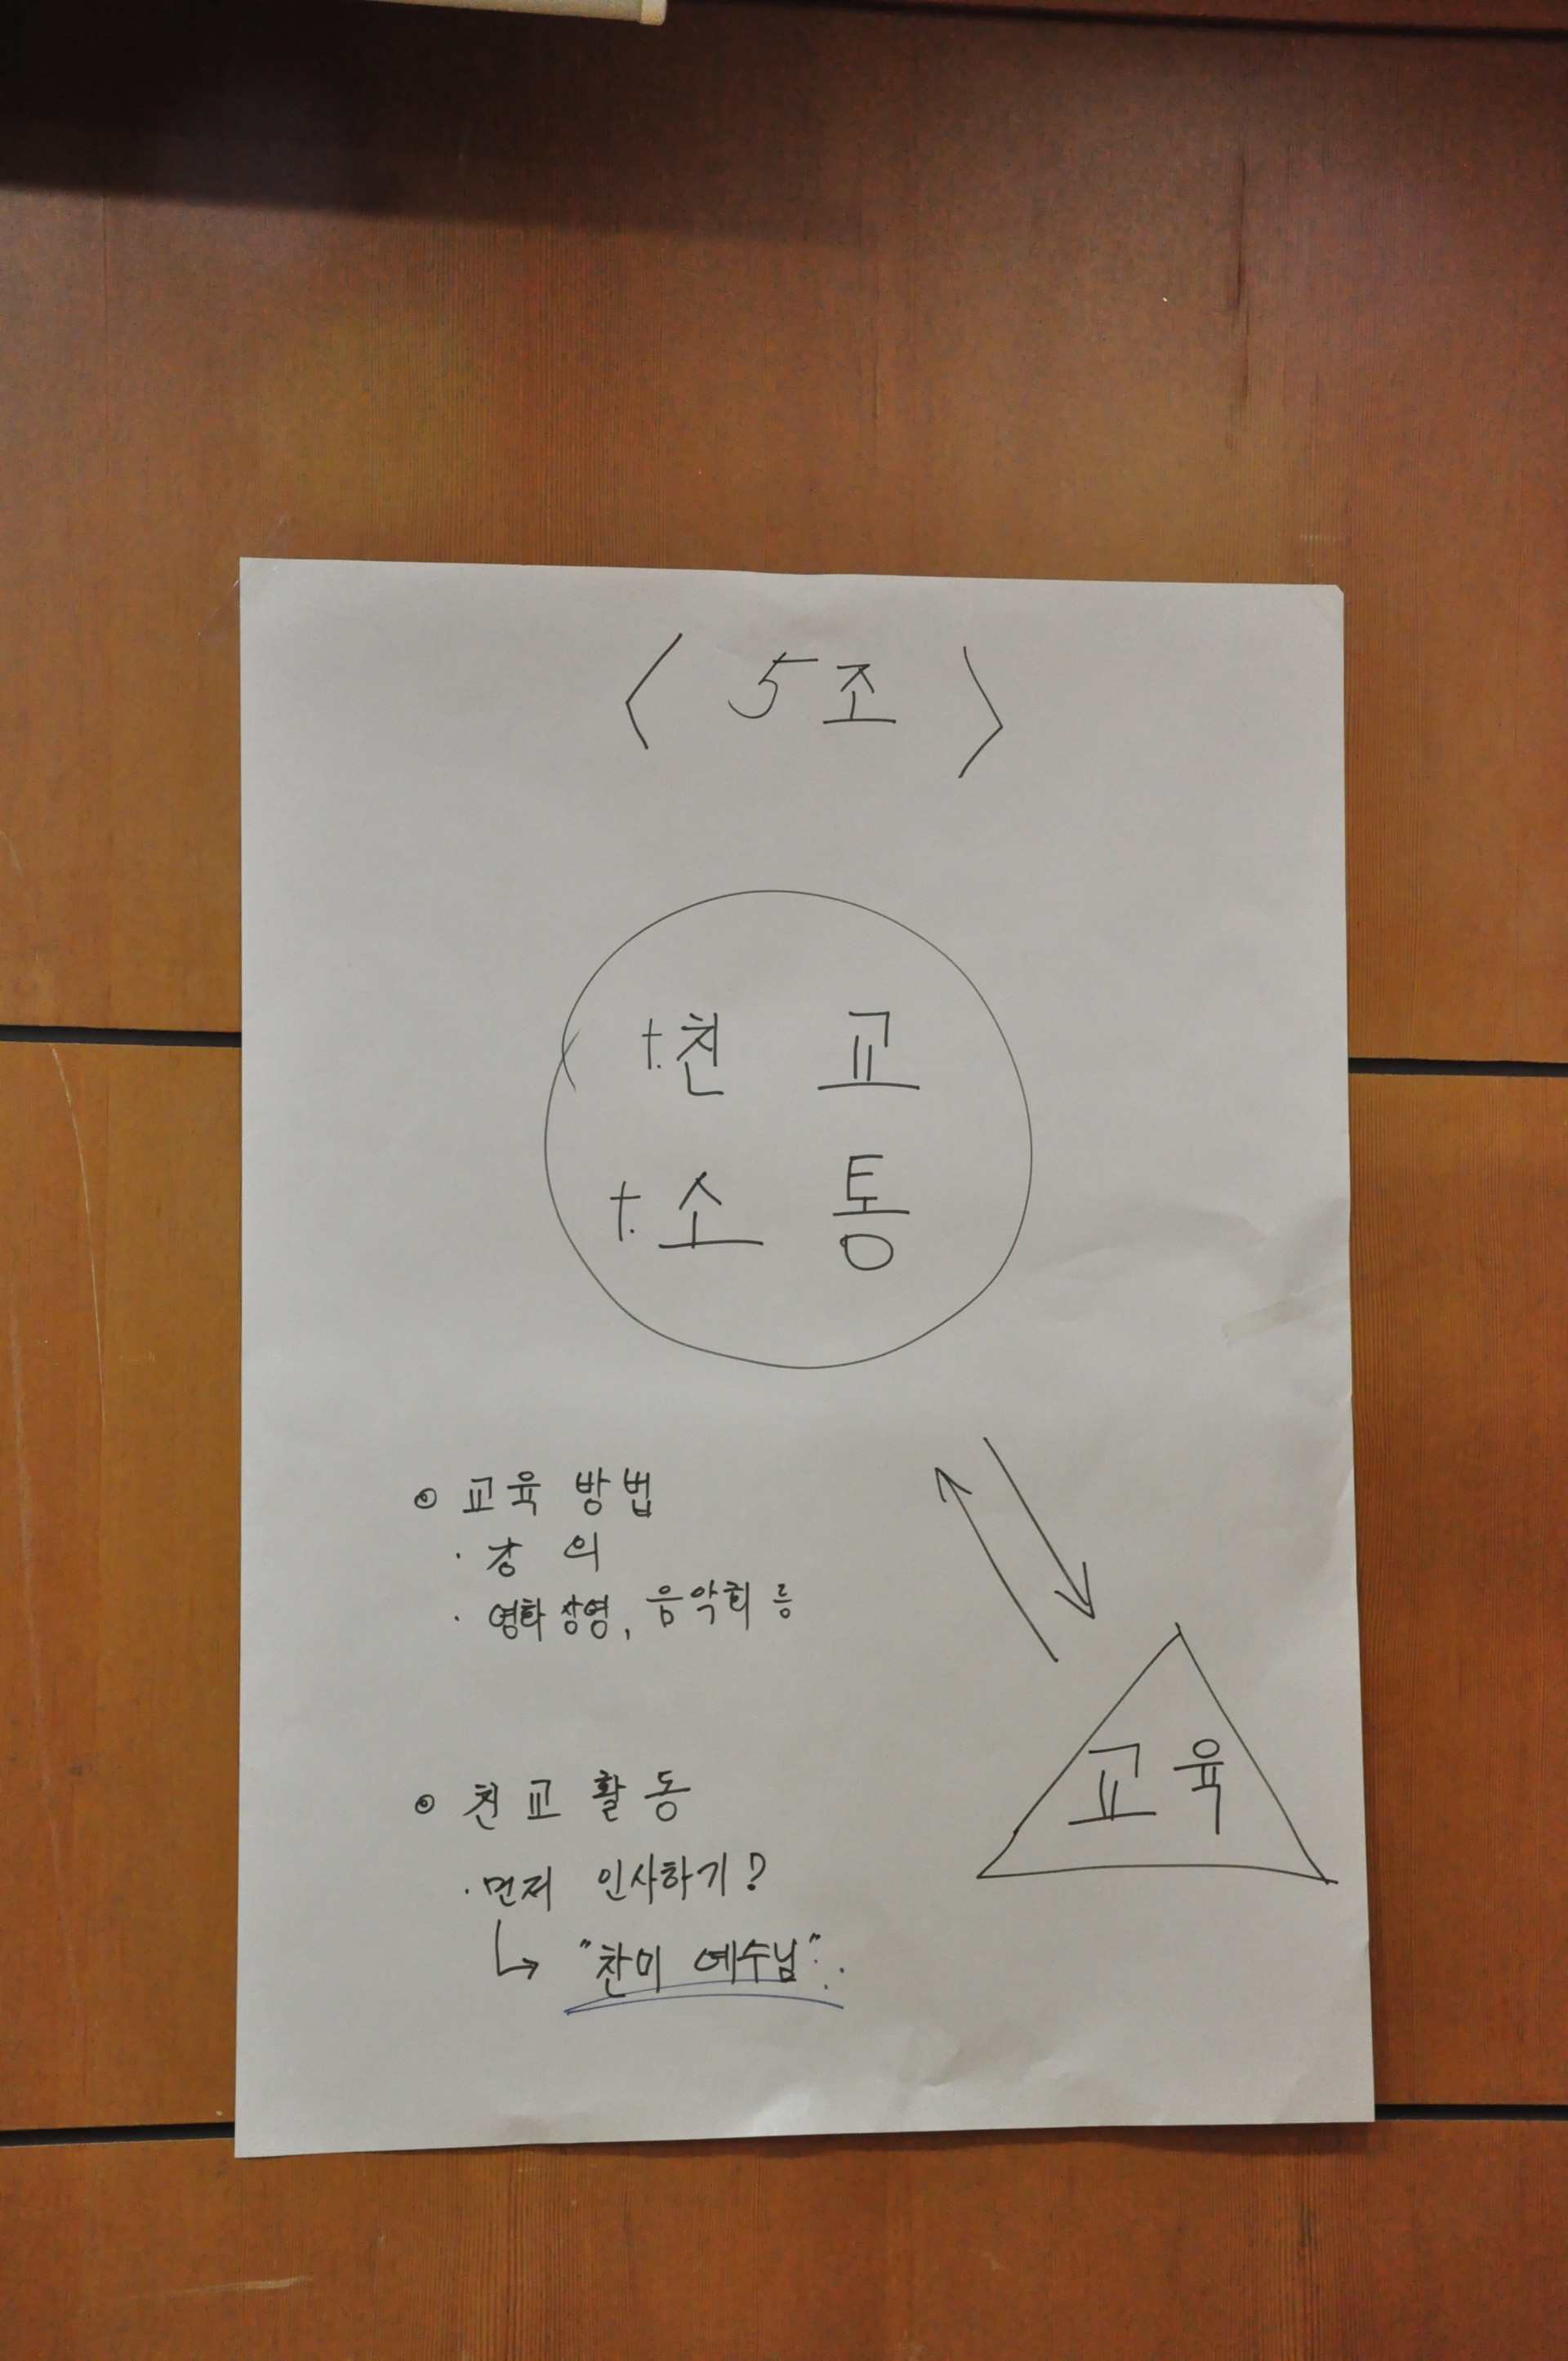 〈 5조 〉
†. 친 교
†. 소 통
◎ 교육 방법
· 강 의
· 영화 상영, 음악회 등
교육
◎ 친교 활동
· 먼저 인사하기?
↳ "찬미 예수님"